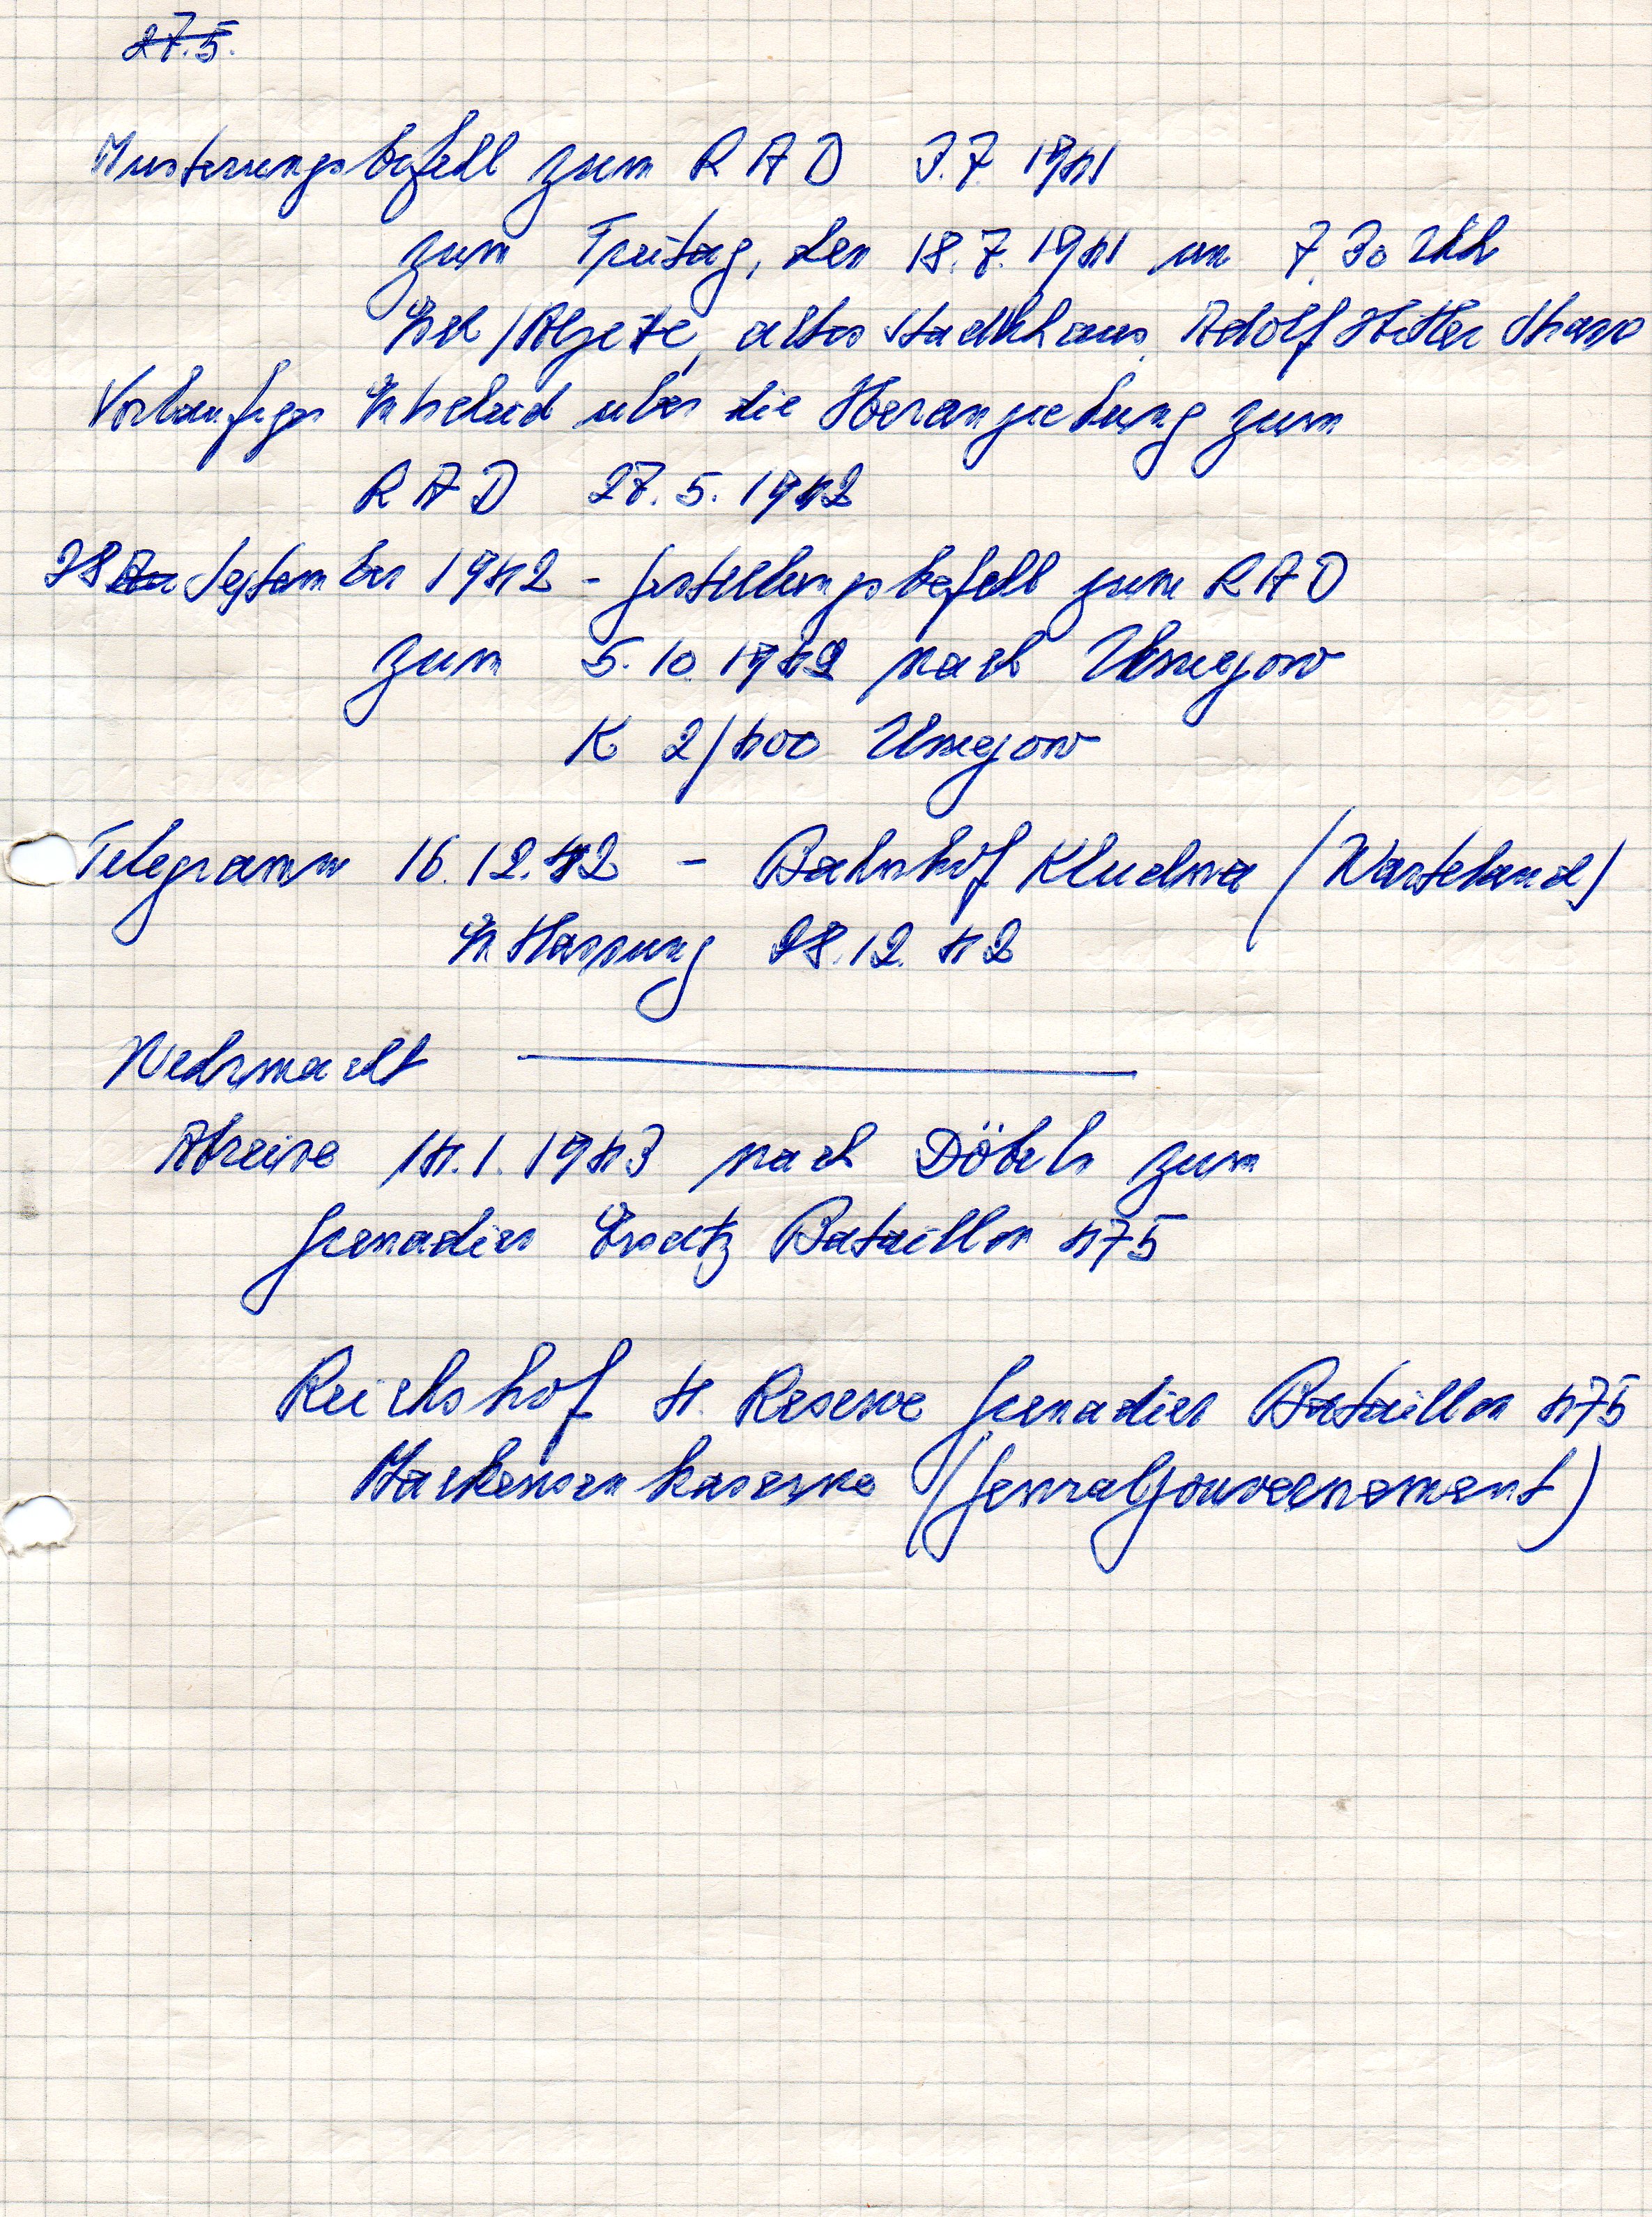 27.5.
Musterungsbefehl zum RAD 3.7. 1941
zum Freitag, den 18.7.1941 um 7.30 Uhr
altes Stadthaus, Adolf Hitler Strasse
Vorläufiger Entscheid über die Heranziehung zum
RAD 27.5.1942
28 September 1942 - Gestellungsbefehl zum RAD
zum 5.10.1942 nach
K 2/400
Telegramm 16.12.42 - Bahnhof Klodawa (Wartheland)
Entlassung 28.12.42
Wehrmacht
Abreise 14.1.1943 nach Döbeln zum
Grenadier Ersatz Bataillon 475
Reichshof 4. Reserve Grenadier Bataillon 475
Mackensen Kaserne (Generalgouvernement)